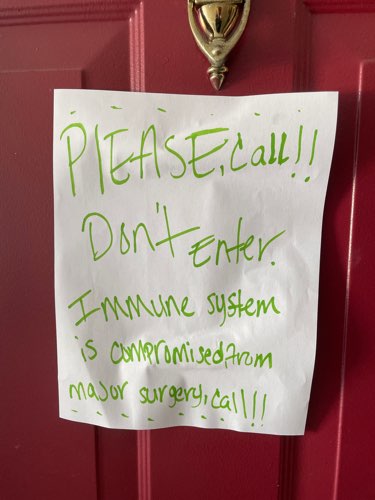 PlEASE, Call!!
Don't Enter.
Immune system
is compromised, from
major surgery, call!!!